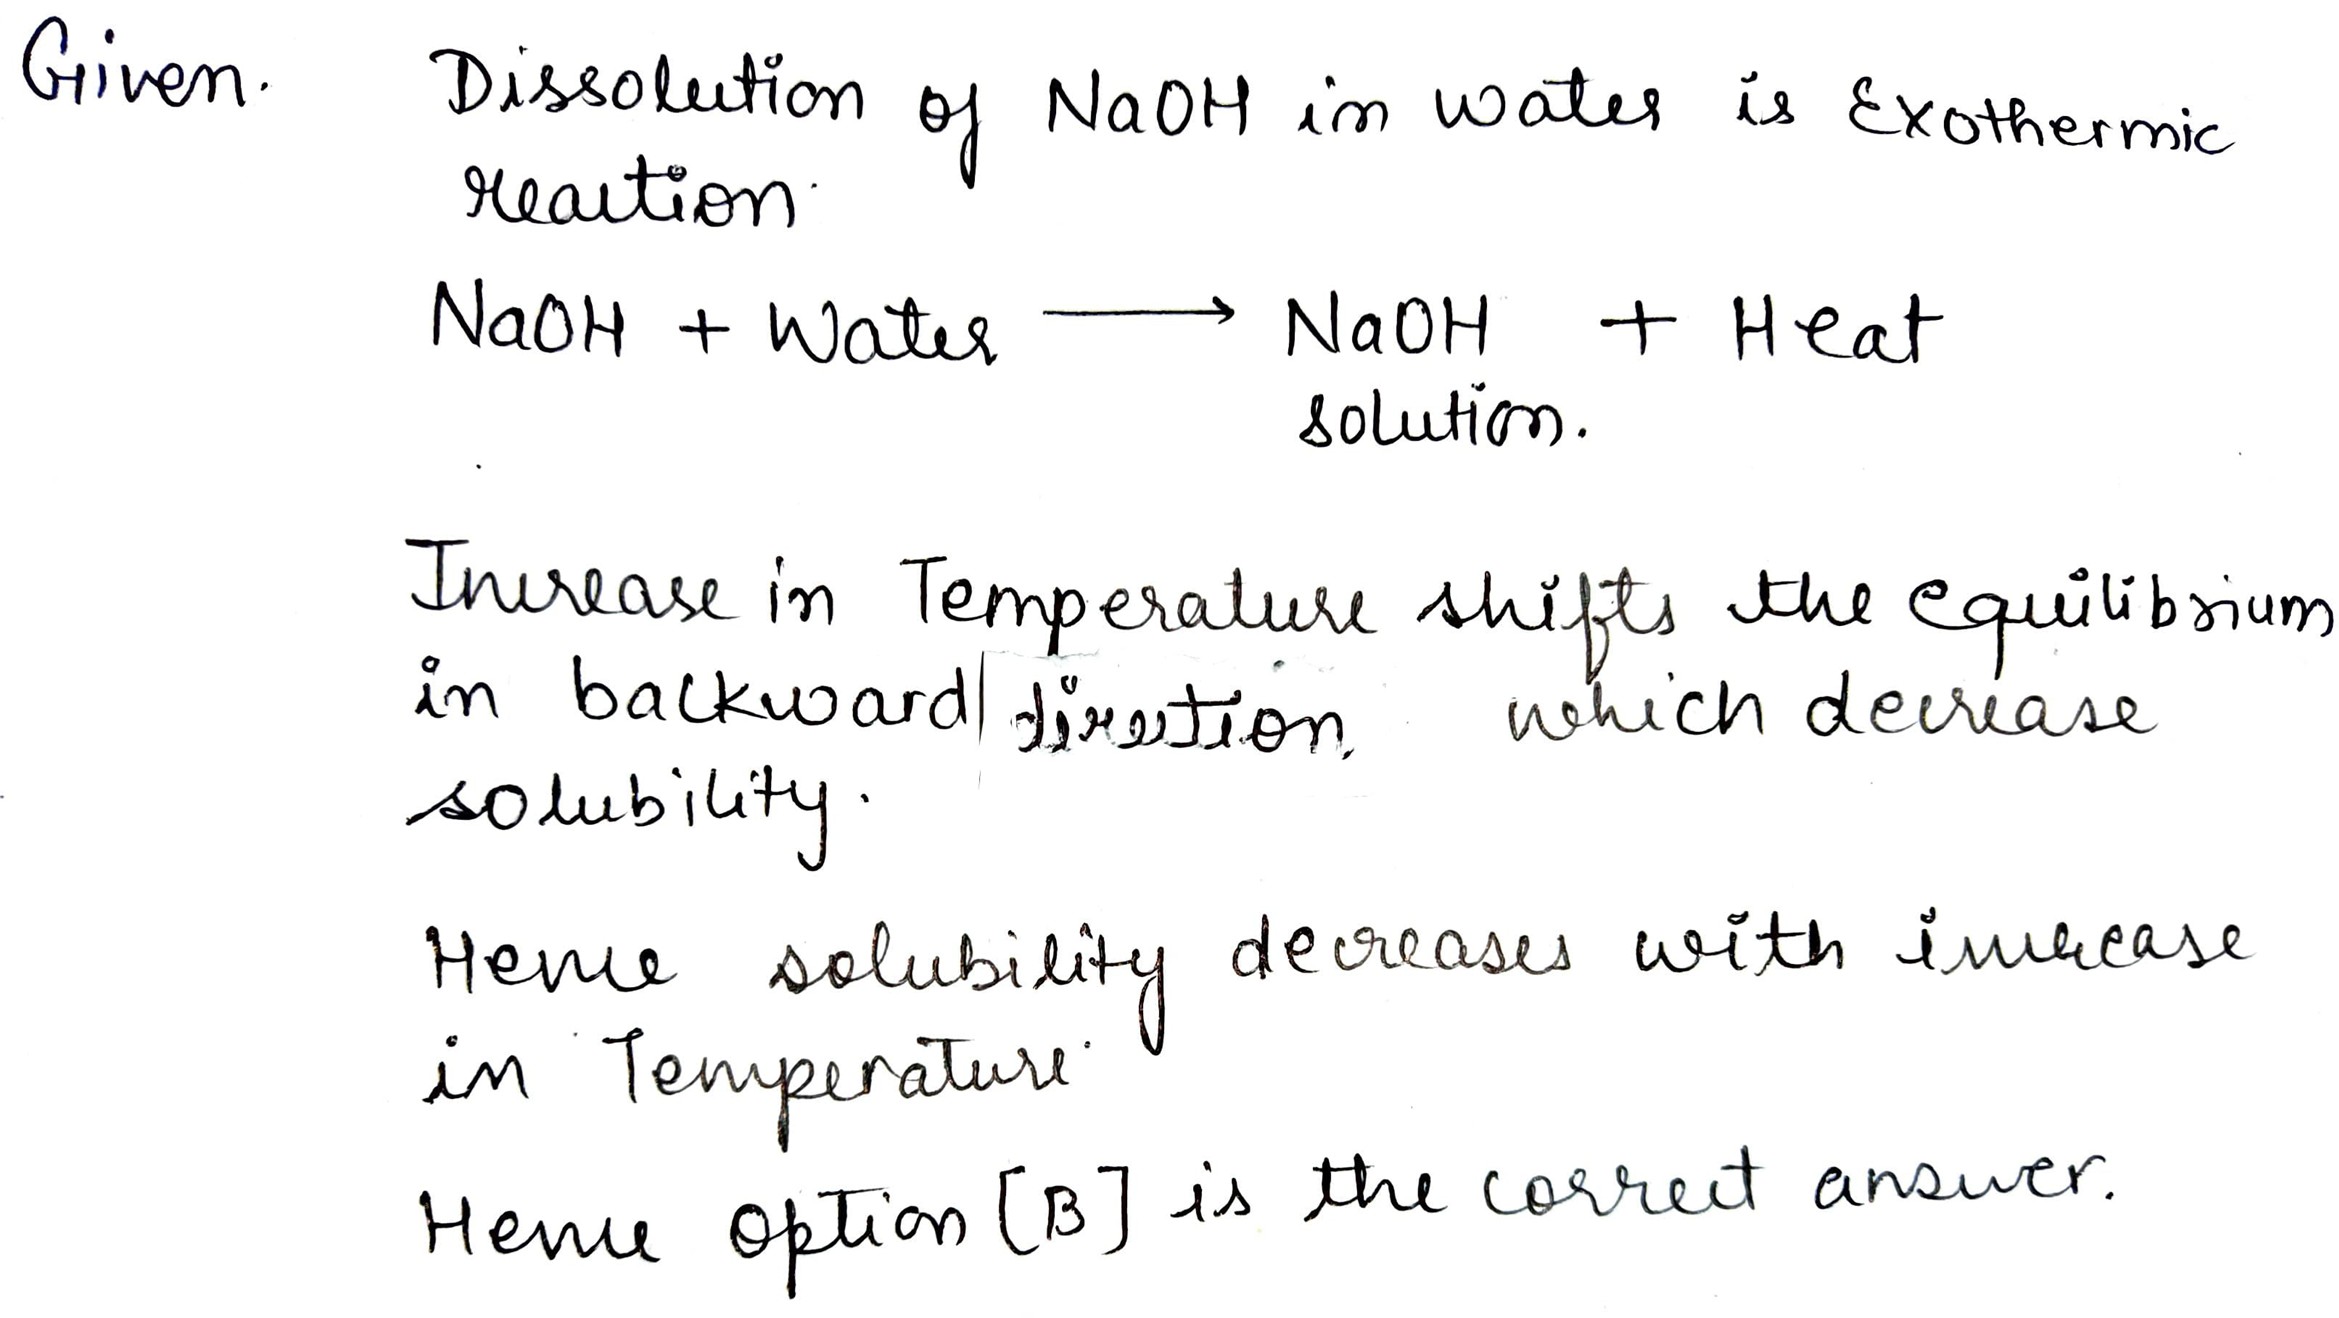 Given. Dissolution of NaOH in water is Exothermic
reaction.
NaOH + Water ⟶ NaOH + Heat
solution.
Increase in Temperature shifts the equilibrium
in backward direction. which decrease
solubility.
Hence solubility decreases with increase
in Temperature.
Hence option [B] is the correct answer.